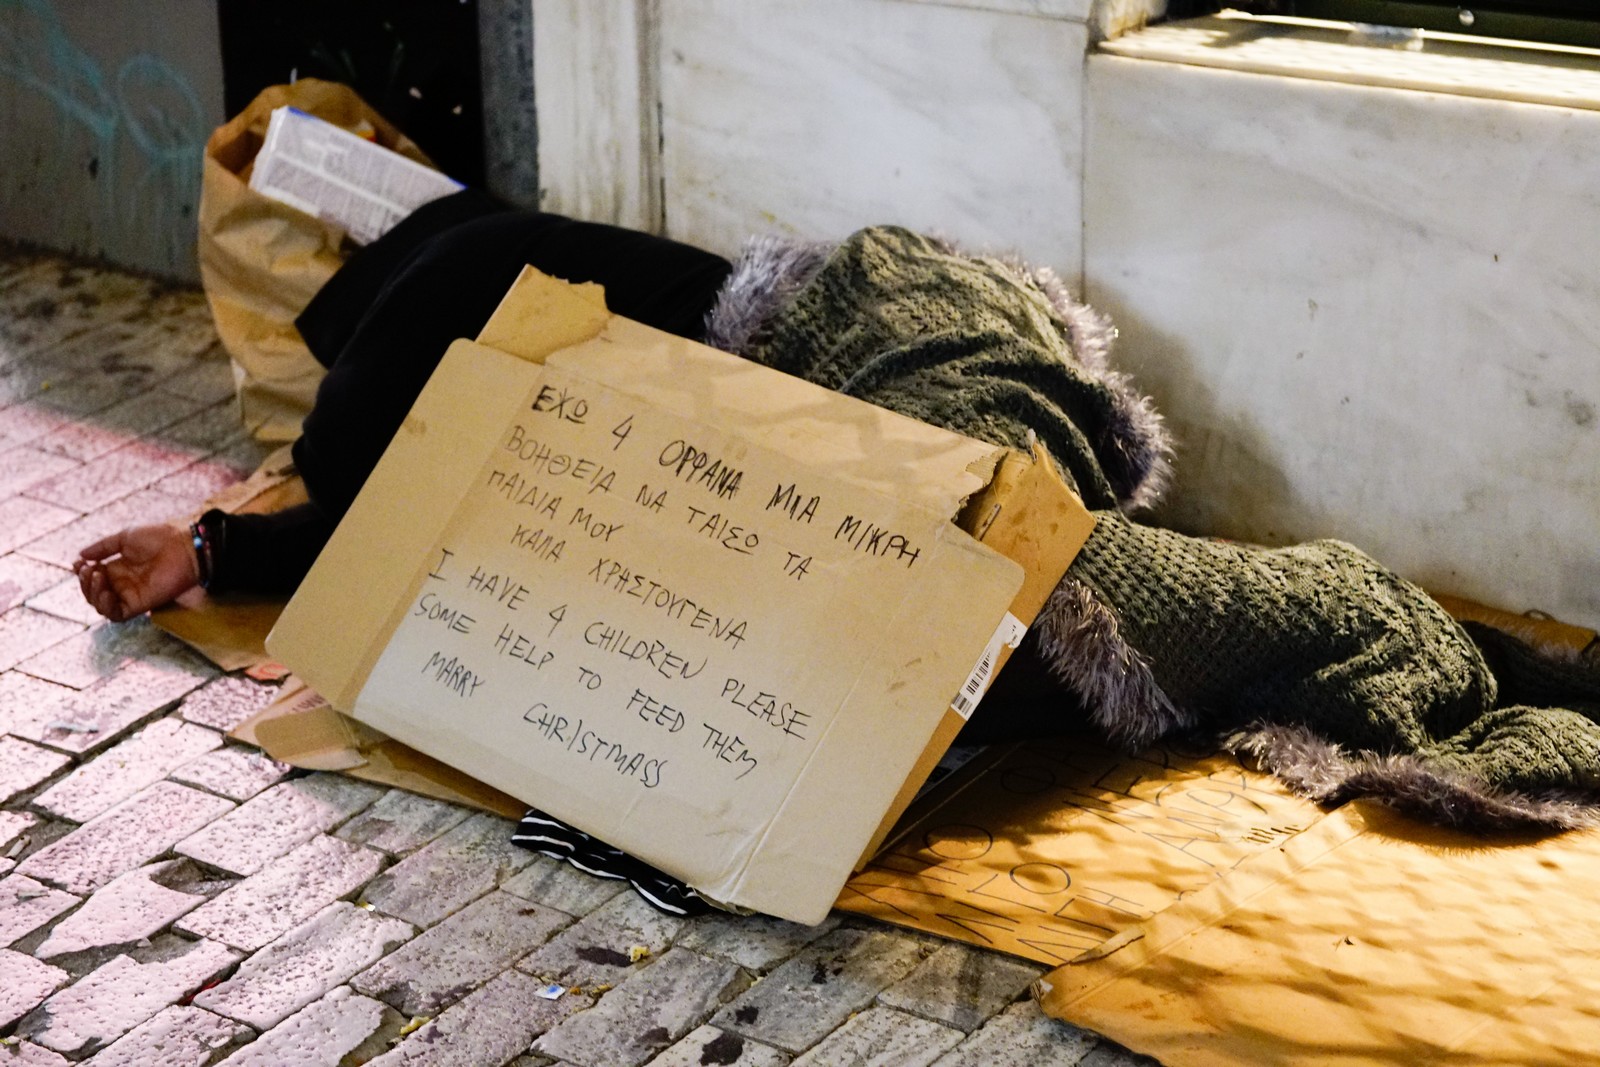 ΕΧΩ 4 ΟΡΦΑΝΑ ΜΙΑ ΜΙΚΡΗ
ΒΟΗΘΕΙΑ ΝΑ ΤΑΙΣΩ ΤΑ
ΠΑΙΔΙΑ ΜΟΥ
ΚΑΛΑ ΧΡΗΣΤΟΥΓΕΝΑ
I HAVE 4 CHILDREN PLEASE
SOME HELP TO FEED THEM
MARRY CHRISTMASS